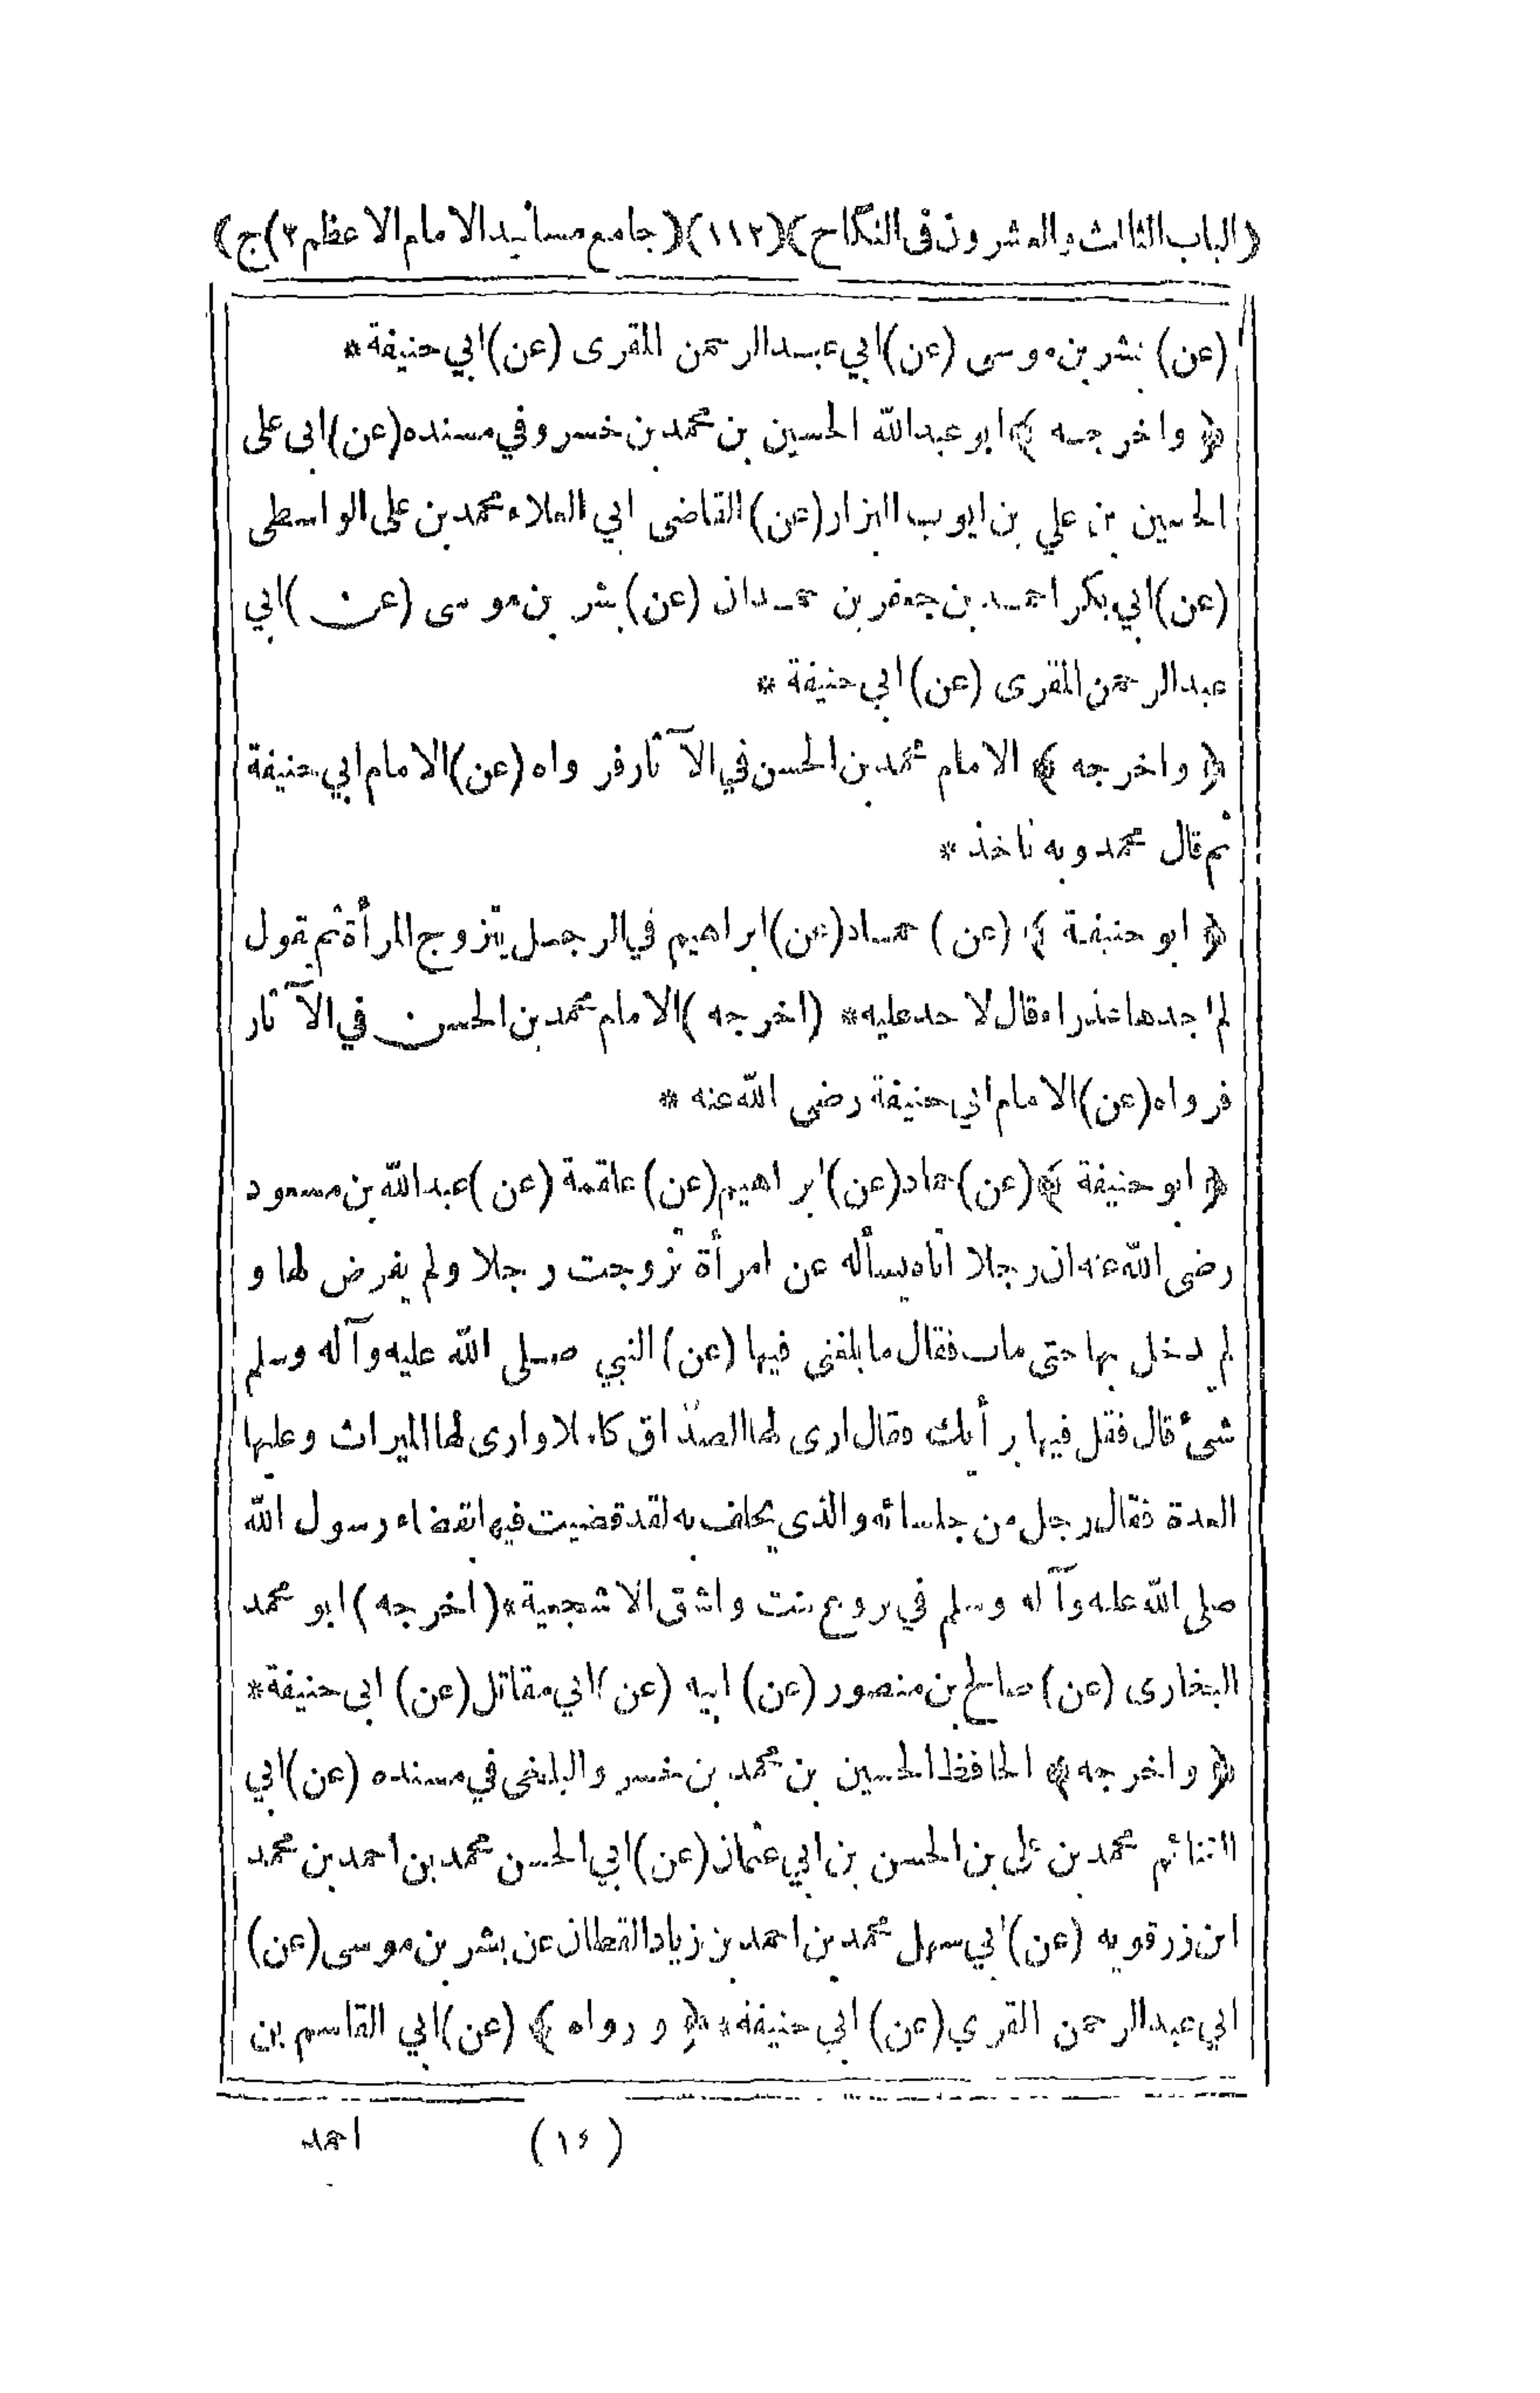 ﴿الباب الثالث والعشرون فى النكاح﴾ (١١٢) ﴿جامع مسانيد الامام الاعظم ٢)ج﴾
(عن) بشر بن موسى (عن) ابي عبد الرحمن المقرى (عن) ابي حنيفة *
﴿ واخرجه ﴾ ابو عبد الله الحسين بن محمد بن خسرو في مسنده (عن) ابى على
الحسين بن علي بن ايوب البزار (عن) القاضى ابي العلاء محمد بن على الواسطى
(عن) ابي بكر احمد بن جعفر بن حمدان (عن) بشر بن موسى (عن) ابي
عبد الرحمن المقرى (عن) ابي حنيفة *
﴿ واخرجه ﴾ الامام محمد بن الحسن في الآثار فرواه (عن) الامام ابي حنيفة
ثم قال محمد وبه ناخذ *
﴿ ابو حنيفة ﴾ (عن) حماد (عن) ابراهيم في الرجل يتزوج المرأة ثم يقول
لم اجدها عذراء قال لا حد عليه * (اخرجه) الامام محمد بن الحسن في الآثار
فرواه (عن) الامام ابي حنيفة رضى الله عنه *
﴿ ابو حنيفة ﴾ (عن) حماد (عن) ابراهيم (عن) علقمة (عن) عبد الله بن مسعود
رضى الله عنه ان رجلا اتاه يسأله عن امرأة تزوجت رجلا ولم يفرض لها و
لم يدخل بها حتى مات فقال ما بلغنى فيها (عن) النبي صلى الله عليه وآله وسلم
شئ قال فقل فيها برأيك فقال ارى لها الصداق كاملا وارى لها الميراث وعليها
العدة فقال رجل من جلسائه والذى يحلف به لقد قضيت فيها بقضاء رسول الله
صلى الله عليه وآله وسلم في بروع بنت واشق الاشجعية * (اخرجه) ابو محمد
البخارى (عن) صالح بن منصور (عن) ابيه (عن) ابي مقاتل (عن) ابى حنيفة *
﴿ واخرجه ﴾ الحافظ الحسين بن محمد بن خسرو البلخى في مسنده (عن) ابي
الغنائم محمد بن على بن الحسن بن ابي عثمان (عن) ابي الحسن محمد بن احمد بن محمد
ابن زرقويه (عن) ابي سهل محمد بن احمد بن زياد القطان عن بشر بن موسى (عن)
ابي عبد الرحمن المقري (عن) ابي حنيفة * ﴿ ورواه ﴾ (عن) ابي القاسم بن
(١٤) احمد